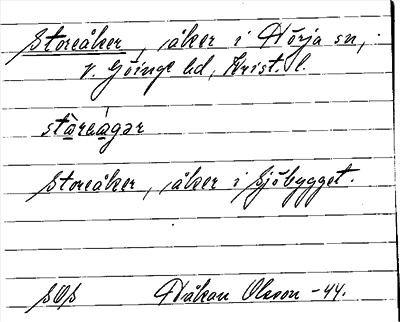 Storeåker, åker i Hörja sn,
V. Göinge hd, Krist. l.
stàreágər
Storeåker, åker i Sjöbygget.
SOS Håkan Olsson -44.